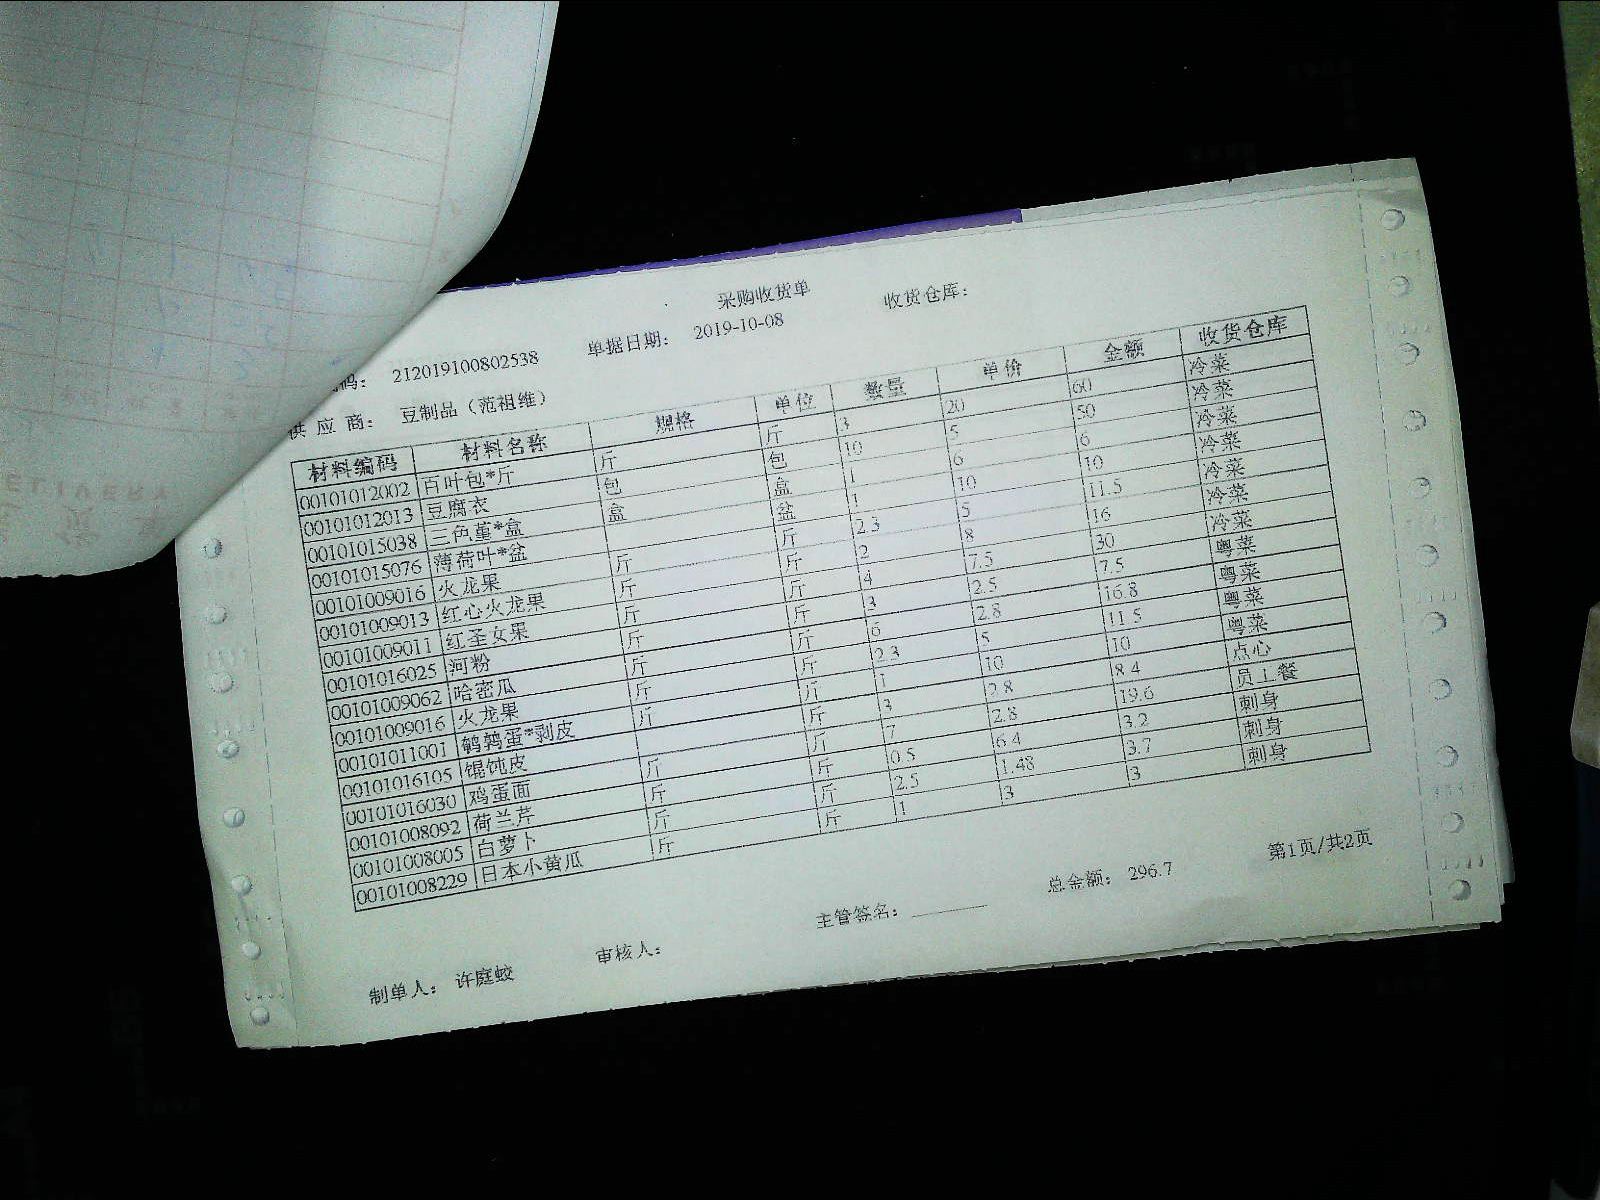 采购收货单
码： 212019100802538 单据日期： 2019-10-08 收货仓库：
供 应 商： 豆制品（范祖维）
材料编码 材料名称 规格 单位 数量 单价 金额 收货仓库
00101012002 百叶包*斤 斤 斤 3 20 60 冷菜
00101012013 豆腐衣 包 包 10 5 50 冷菜
00101015038 三色堇*盒 盒 盒 1 6 6 冷菜
00101015076 薄荷叶*盆 盆 1 10 10 冷菜
00101009016 火龙果 斤 斤 2.3 5 11.5 冷菜
00101009013 红心火龙果 斤 斤 2 8 16 冷菜
00101009011 红圣女果 斤 斤 4 7.5 30 冷菜
00101016025 河粉 斤 斤 3 2.5 7.5 粤菜
00101009062 哈密瓜 斤 斤 6 2.8 16.8 粤菜
00101009016 火龙果 斤 斤 2.3 5 11.5 粤菜
00101011001 鹌鹑蛋*剥皮 斤 斤 1 10 10 粤菜
00101016105 馄饨皮 斤 3 2.8 8.4 点心
00101016030 鸡蛋面 斤 斤 7 2.8 19.6 员工餐
00101008092 荷兰芹 斤 斤 0.5 6.4 3.2 刺身
00101008005 白萝卜 斤 斤 2.5 1.48 3.7 刺身
00101008229 日本小黄瓜 斤 斤 1 3 3 刺身
制单人： 许庭蛟 审核人： 主管签名： 总金额： 296.7 第1页/共2页